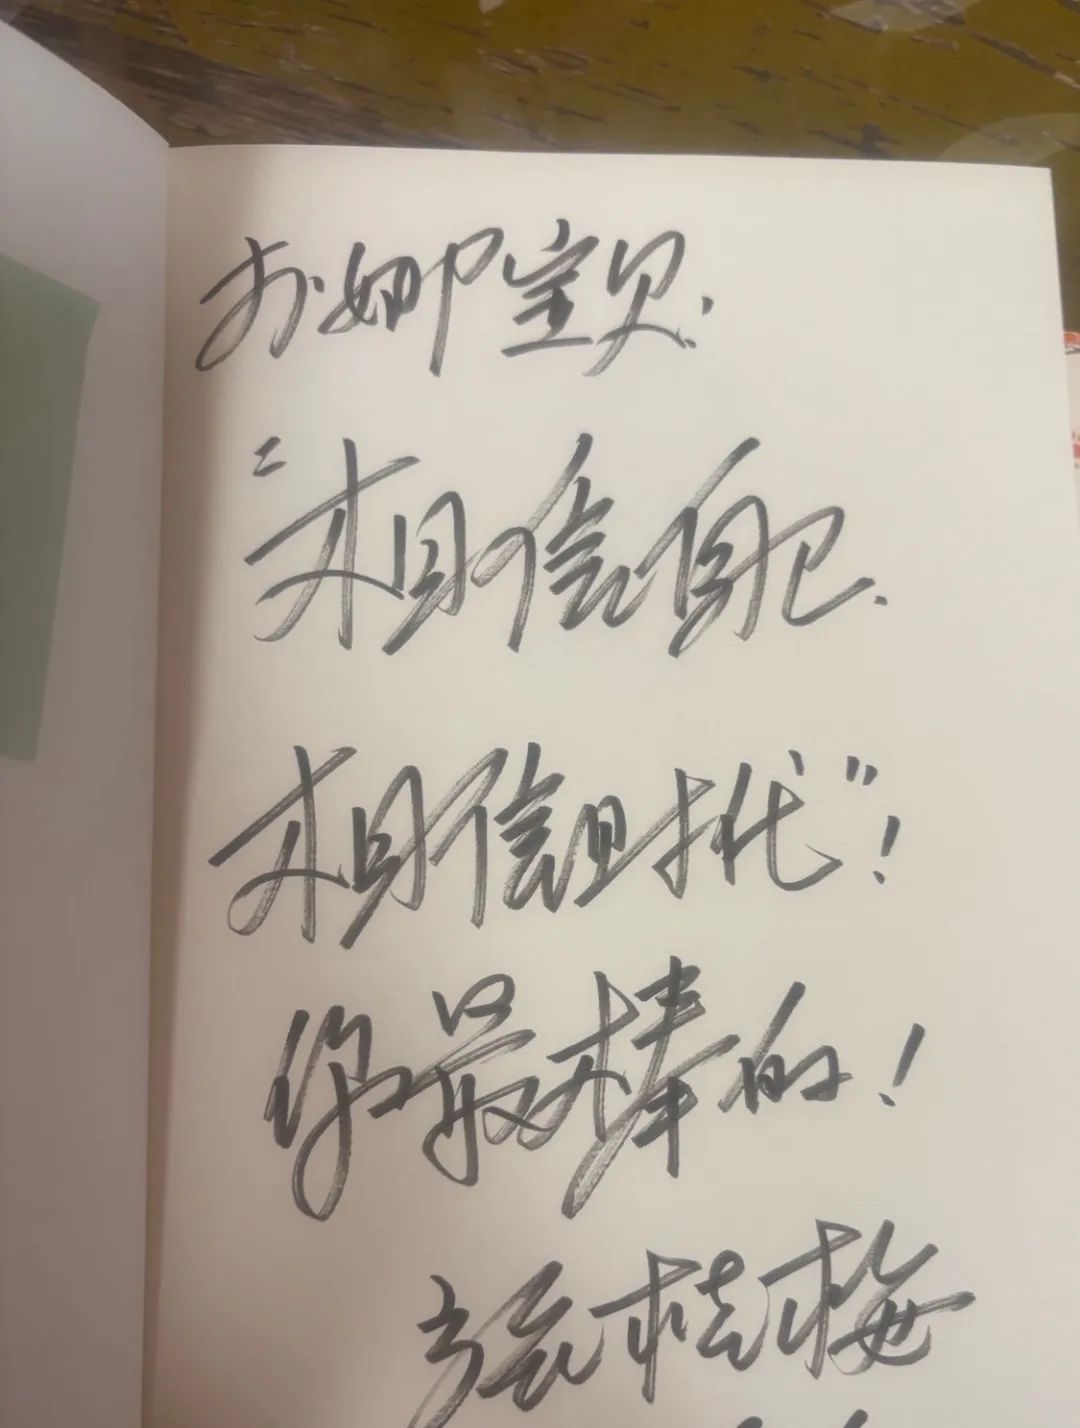 娜宝贝.
"相信自己.
相信时代"!
你最棒的!
张桂梅